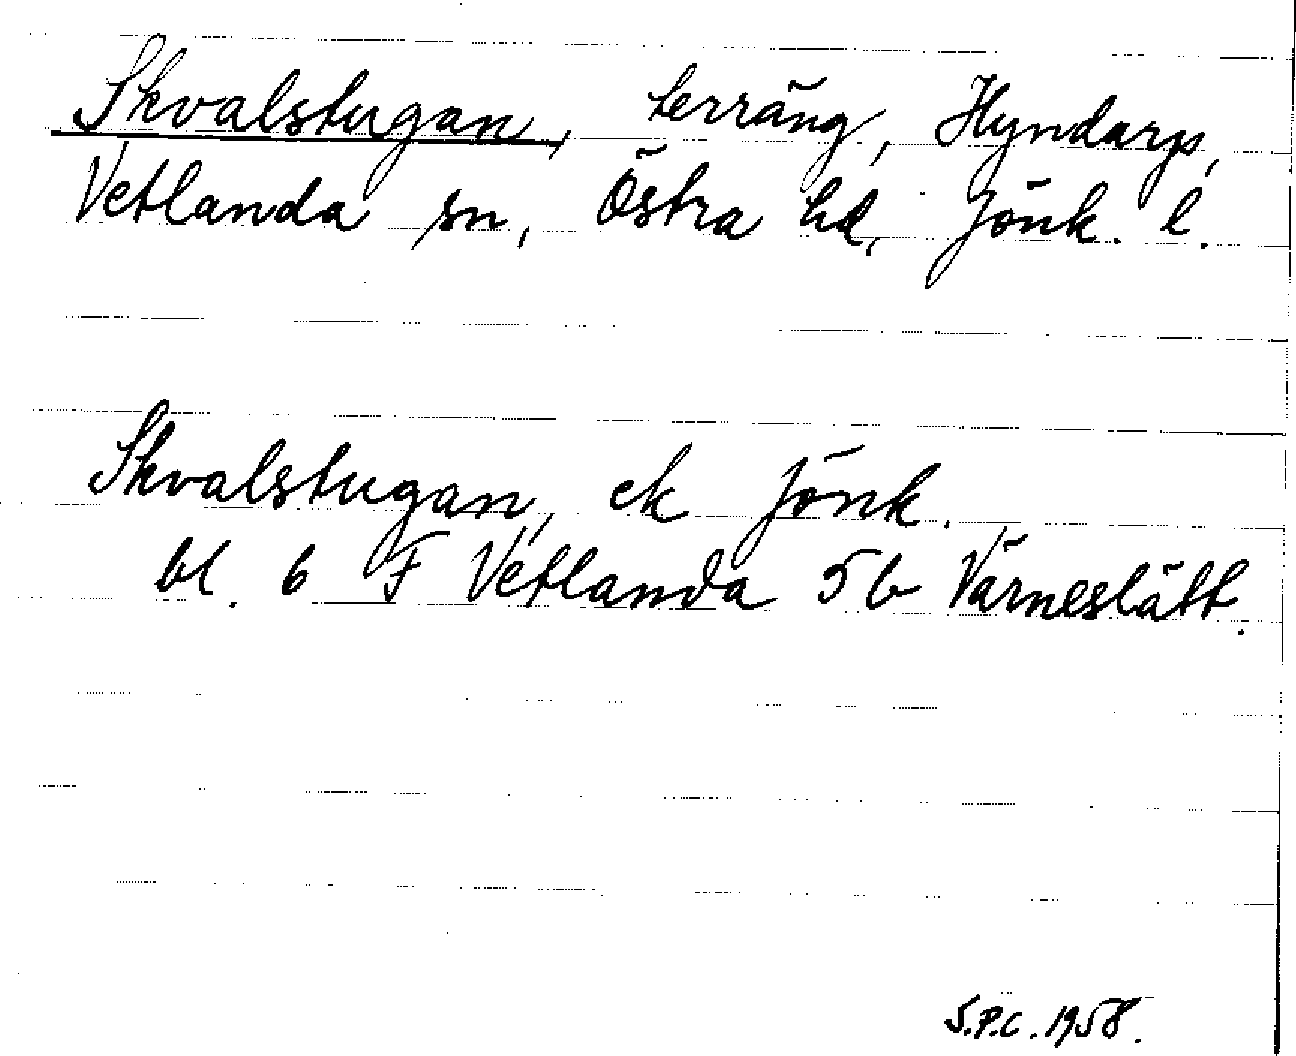 Skvalstugan, terräng, Hyndarp,
Vetlanda sn, Östra hd, Jönk. l.
Skvalstugan, ek Jönk.
bl. 6 F Vetlanda 5 b Värneslätt.
S.P.C. 1958.